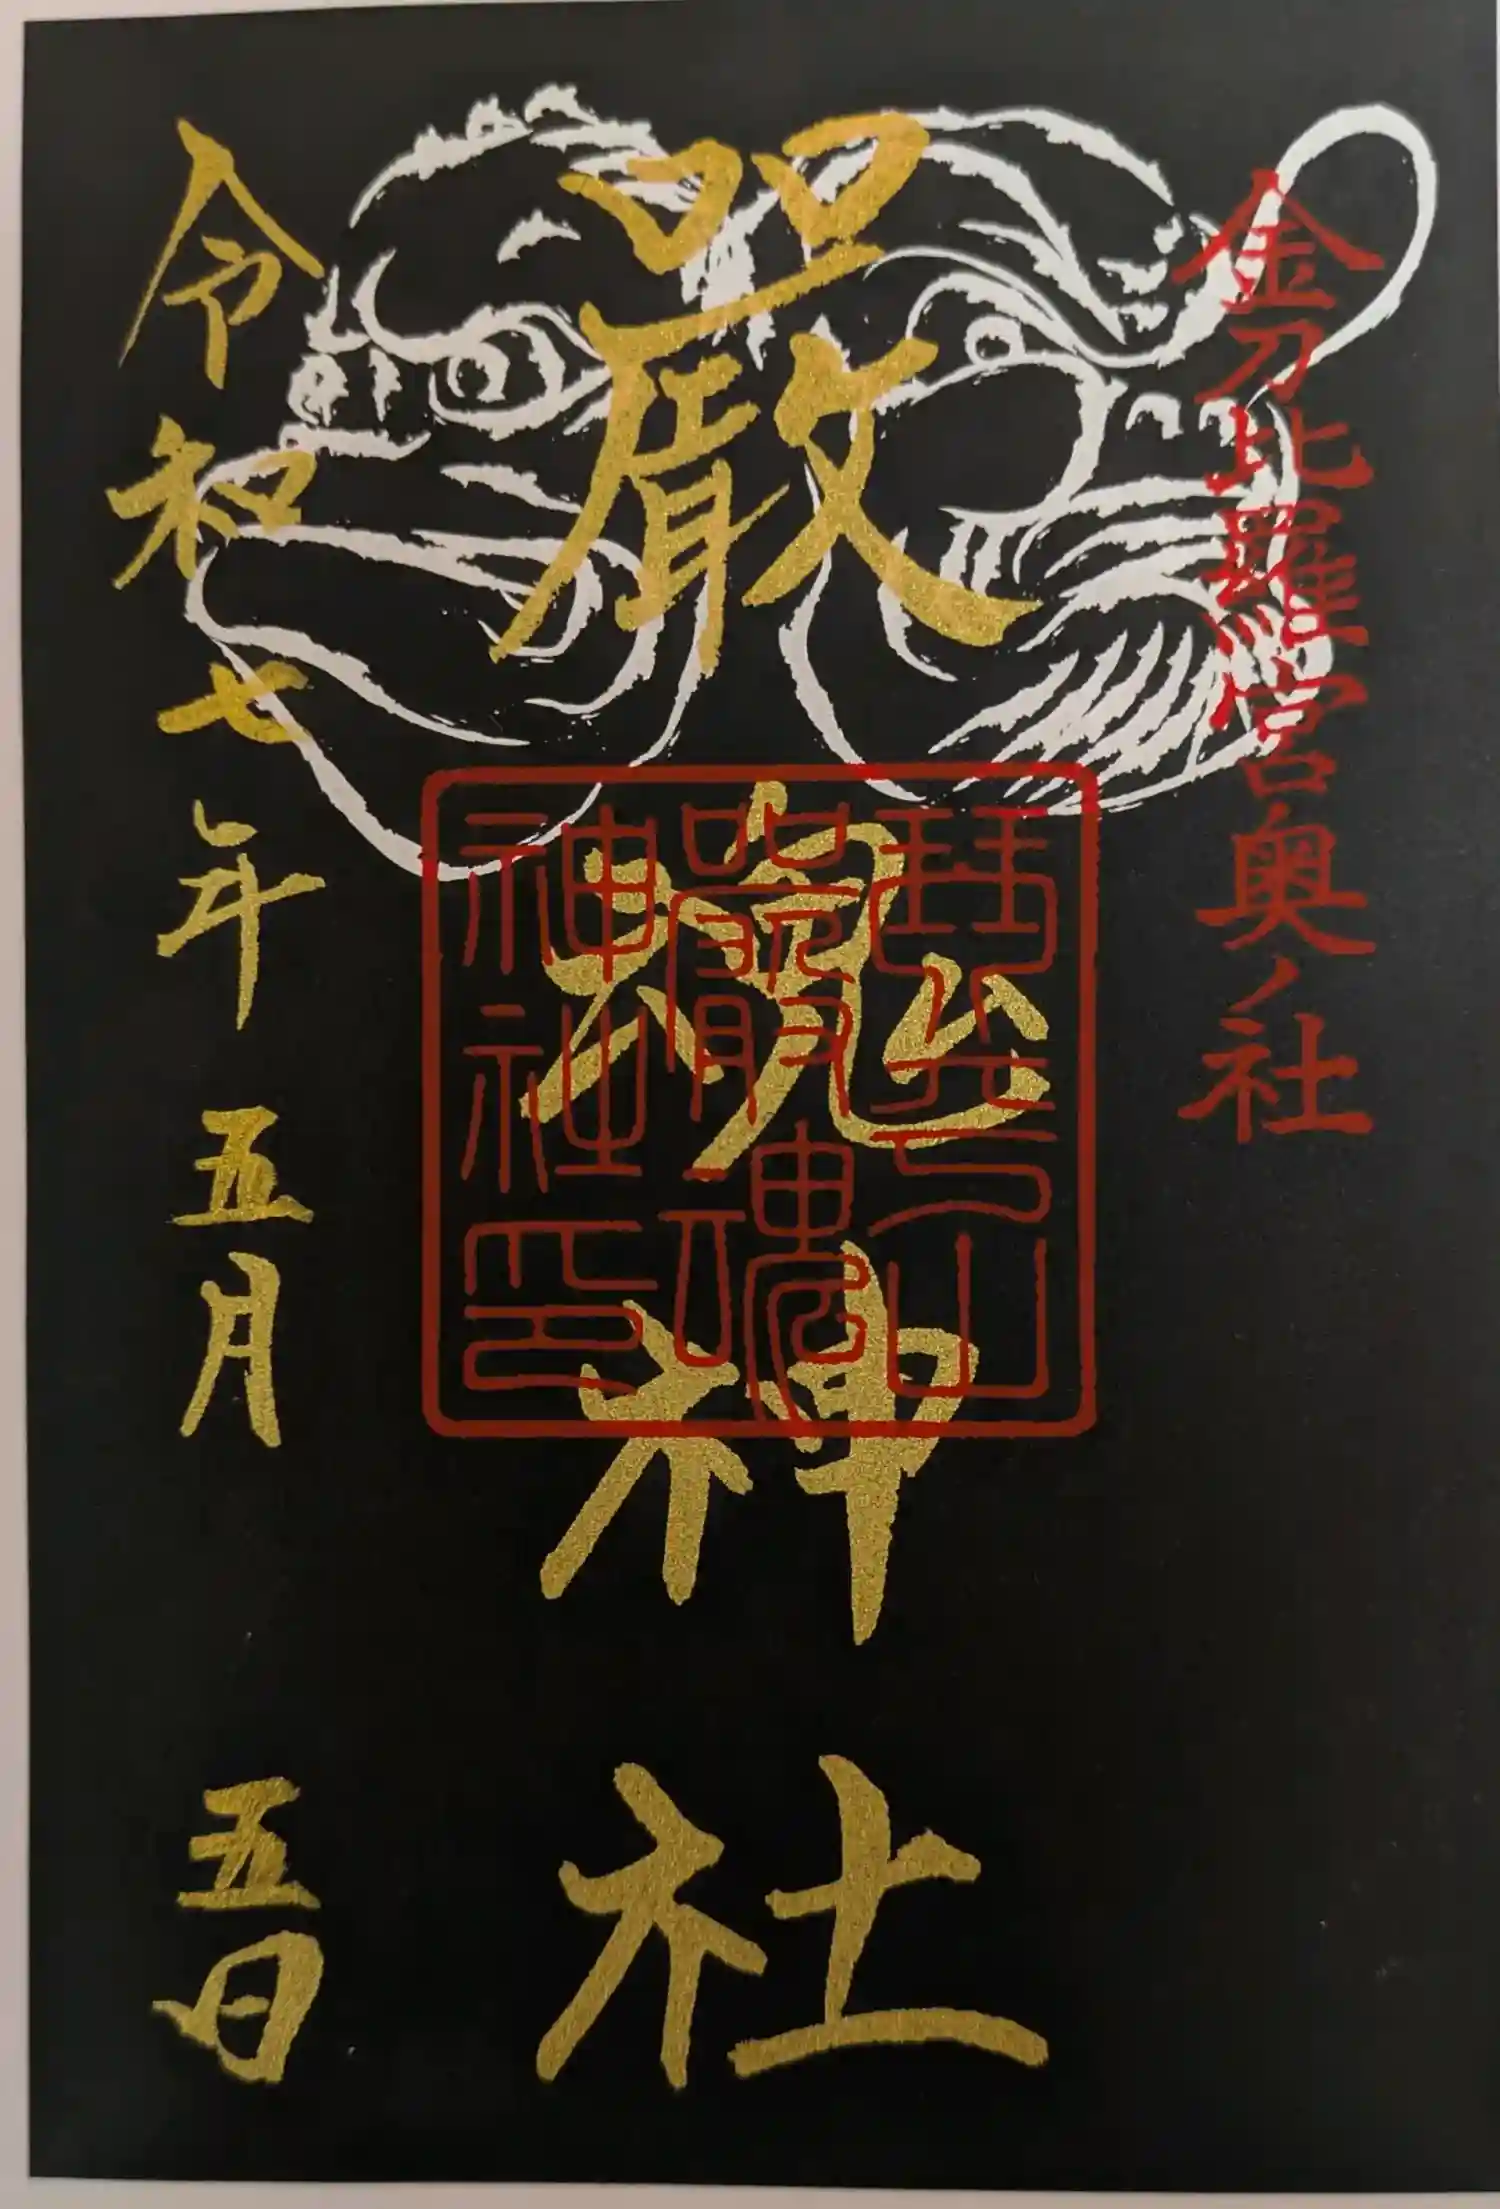 金刀比羅宮奥ノ社
嚴魂神社
琴平山
嚴魂
神社印
令和七年五月五日